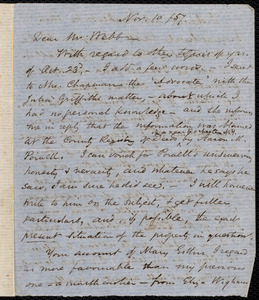 Nov. 10 / 57.
Dear Mr. Webb:
With regard to the
of Oct. 23d, - I add a few words. I sent
to Mrs. Chapman the "Advocate" with the
Julia Griffiths matter, - about which I
has no personal knowledge - and she informs
me in reply that the information was
at the County by Aaron M.
Powell. I can vouch for Powell's unswerving
honesty & veracity, and whatever he says he
said, I am sure he did see. - I will however
write to him on the subject, & get fuller
particulars, and, if possible, the exact
present situation of the property in question.
Your account of Mary Estlin, I regard
as more favourable than my previous
one - a month earlier - from Eliza Wigham